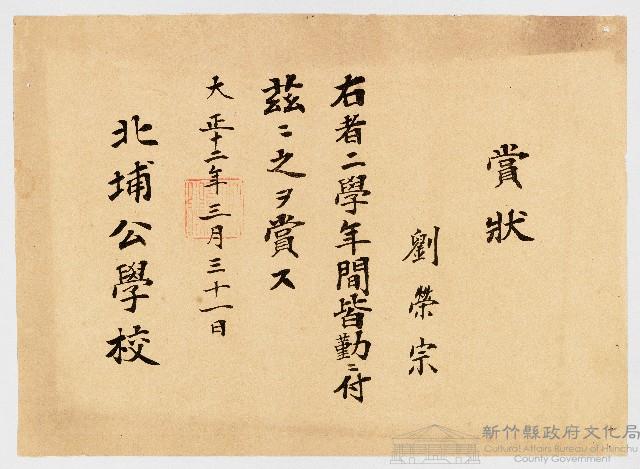 賞狀
劉榮宗
右者二學年間皆勤ニ付
茲ニ之ヲ賞ス
大正十二年三月三十一日
北埔公學校
新竹縣政府文化局
Cultural Affairs Bureau of Hsinchu
County Government